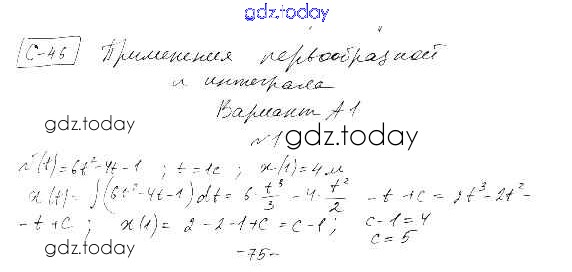 gdz.today
С-46 Применения первообразной
и интеграла
Вариант А1
gdz.today
№1 gdz.today
v(t)=6t²-4t-1 ; t=1c ; x(1)=4м
x(t)= ∫(6t²-4t-1)dt= 6·t³/3 - 4·t²/2 -t+C=2t³-2t²-
-t+C ; x(1)= 2-2-1+C=C-1 ; C-1=4
C=5
gdz.today
-75-